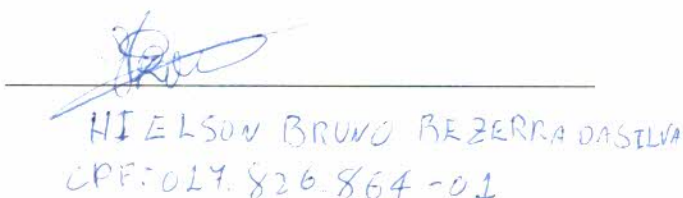 HIELSON BRUNO BEZERRA DA SILVA
CPF: 017.826.864-01